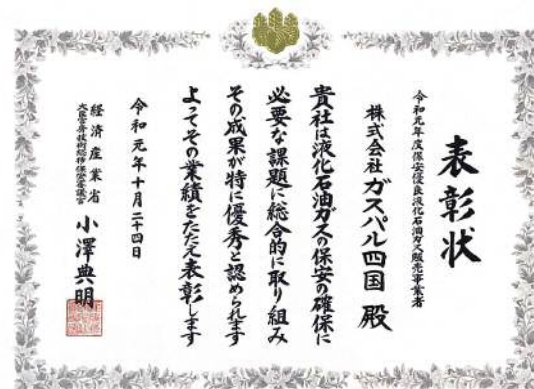 表彰状
令和元年度保安優良液化石油ガス販売事業者
株式会社ガスパル四国 殿
貴社は液化石油ガスの保安の確保に
必要な課題に総合的に取り組み
その成果が特に優秀と認められます
よってその業績をたたえ表彰します
令和元年十月二十四日
経済産業省
大臣官房技術総括・保安審議官
小澤典明